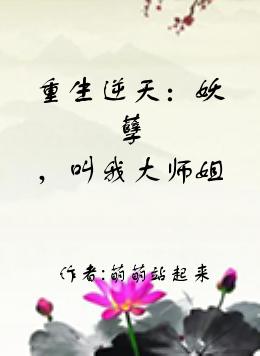 重生逆天：妖
孽
，叫我大师姐
作者:萌萌站起来